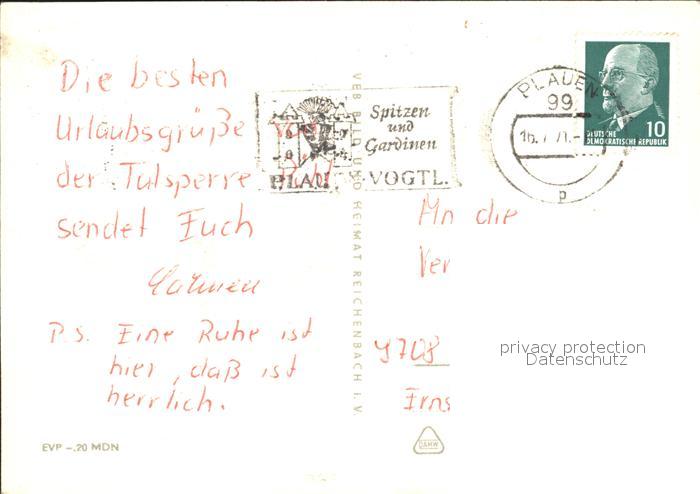 Die besten
Urlaubsgrüße von
der Talsperre Pöhl
sendet Euch
Carmen
P.S. Eine Ruhe ist
hier, daß ist
herrlich.
EVP -.20 MDN
VEB BILD UND HEIMAT REICHENBACH I. V.
PLAUEN
Spitzen
und
Gardinen
VOGTL.
PLAUEN
99
16.7.71.-
p
10
DEUTSCHE
DEMOKRATISCHE REPUBLIK
An die
Ver
9708
Irns
privacy protection
Datenschutz
DAMW